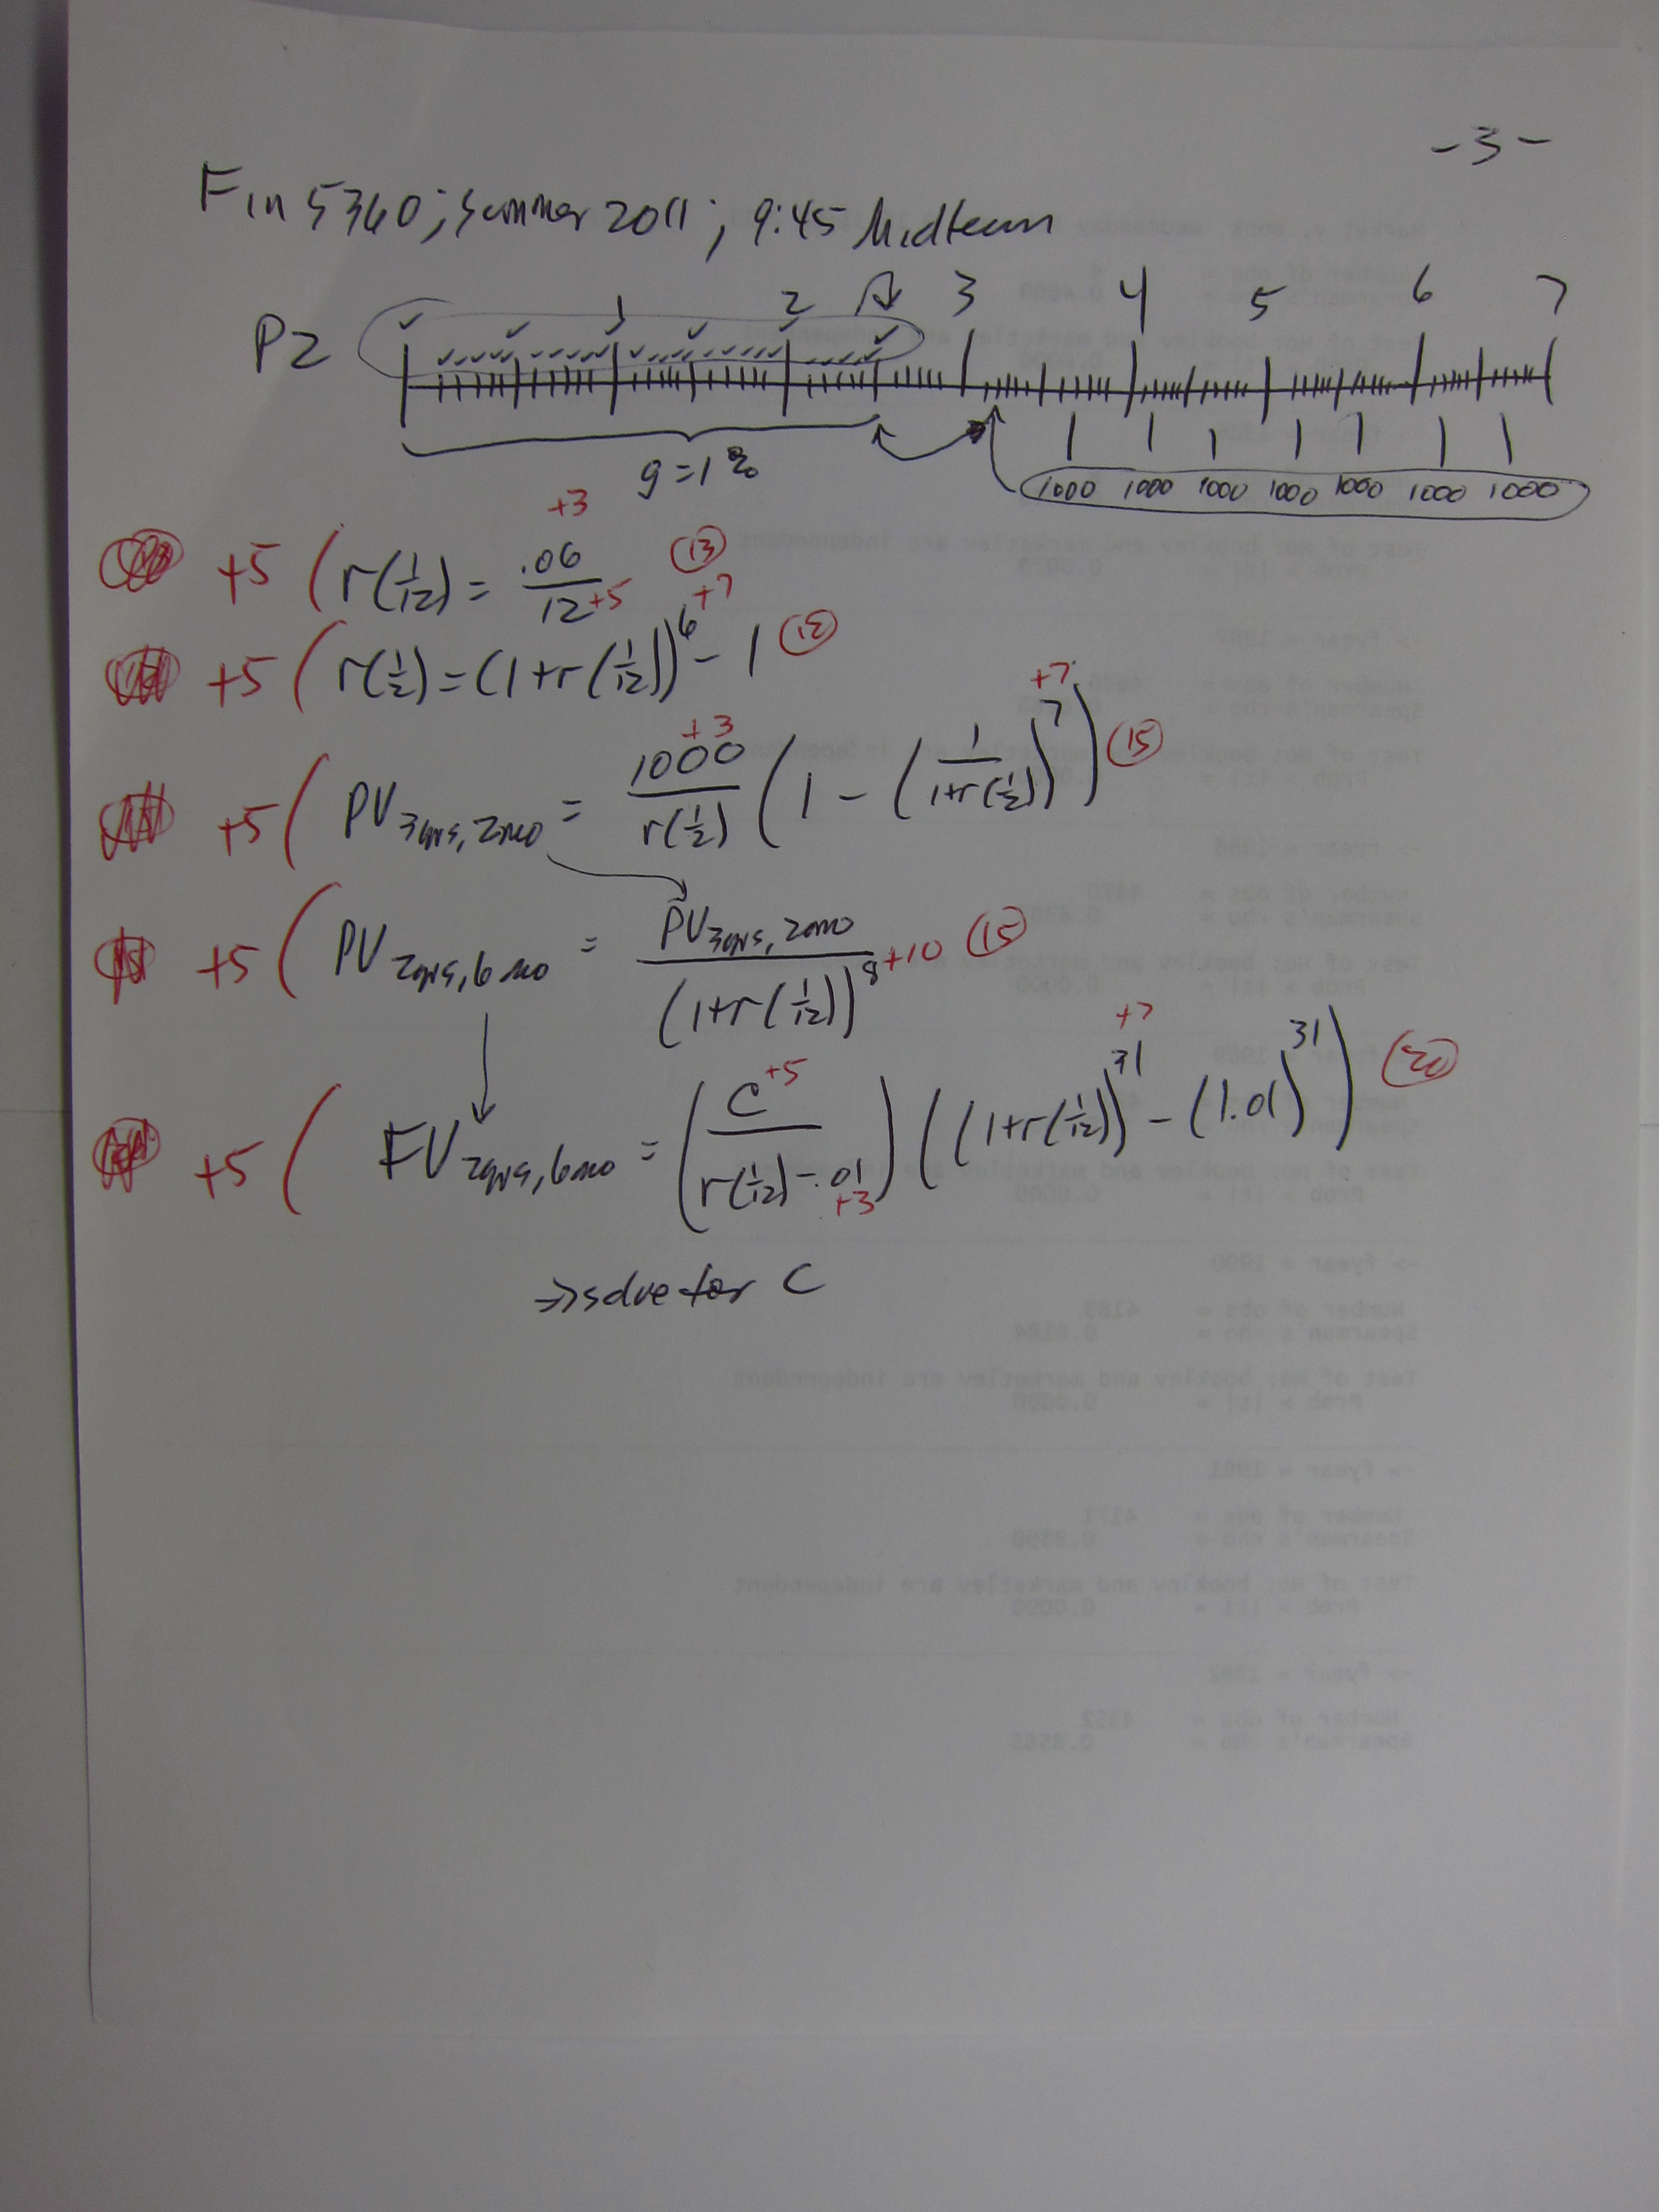 -3-
Fin 5360; Summer 2011; 9:45 Midterm
P2
1 2 3 4 5 6 7
g=1%
1000 1000 1000 1000 1000 1000 1000
+3
+5 ( r(1/12) = .06/12 +5 (13)
+7
+5 ( r(1/2) = (1+r(1/12))^6 - 1 (12)
+7
+3
+5 ( PV 3yrs, 2mo = 1000/r(1/2) (1 - (1/(1+r(1/2)))^7) (15)
+5 ( PV 2yrs, 6mo = PV 3yrs, 2mo/(1+r(1/12))^8 +10 (15)
+7
+5 ( FV 2yrs, 6mo = (C +5/(r(1/12)-.01 +3)) ((1+r(1/12))^31 - (1.01)^31) (20)
⇒ solve for C